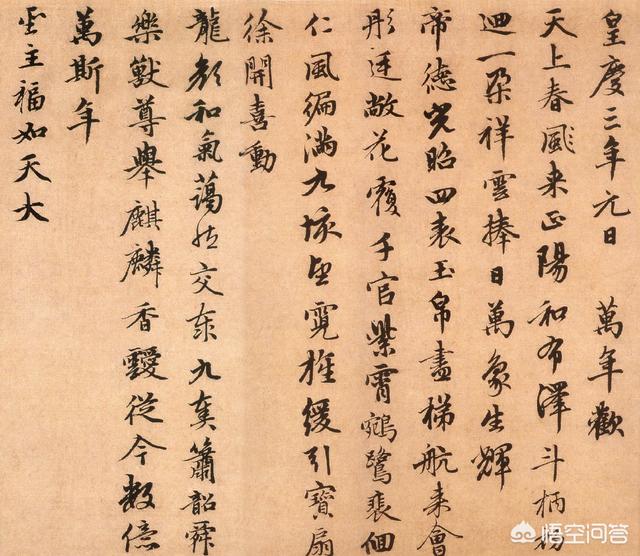 皇慶三年元日 萬年歡
天上春風来正陽和布澤斗柄初
迴一朶祥雲捧日萬象生輝
帝德光昭四表玉帛盡梯航来會
彤廷敞花覆千官紫霄鵷鷺裴佪
仁風徧滿九垓望霓旌緩引寶扇
徐開喜動
龍顔和氣藹然交泰九奏簫韶舜
樂獸尊舉麒麟香靉從今數億
萬斯年
聖主福如天大
悟空问答